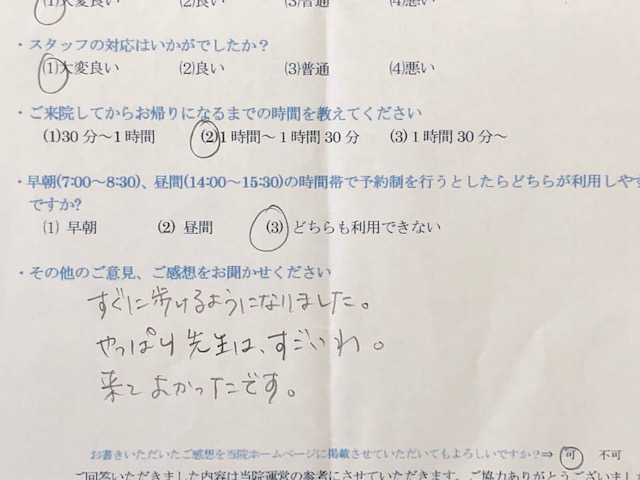 (1)大変良い (2)良い (3)普通 (4)悪い
・スタッフの対応はいかがでしたか？
(1)大変良い (2)良い (3)普通 (4)悪い
・ご来院してからお帰りになるまでの時間を教えてください
(1)30分～1時間 (2)1時間～1時間30分 (3)1時間30分～
・早朝(7:00～8:30)、昼間(14:00～15:30)の時間帯で予約制を行うとしたらどちらが利用しやす
ですか?
(1) 早朝 (2) 昼間 (3) どちらも利用できない
・その他のご意見、ご感想をお聞かせください
すぐに歩けるようになりました。
やっぱり先生は、すごいわ。
来てよかったです。
お書きいただいたご感想を当院ホームページに掲載させていただいてもよろしいですか？⇒ 可 不可
ご回答いただきました内容は当院運営の参考にさせていただきます。ご協力ありがとうございまし